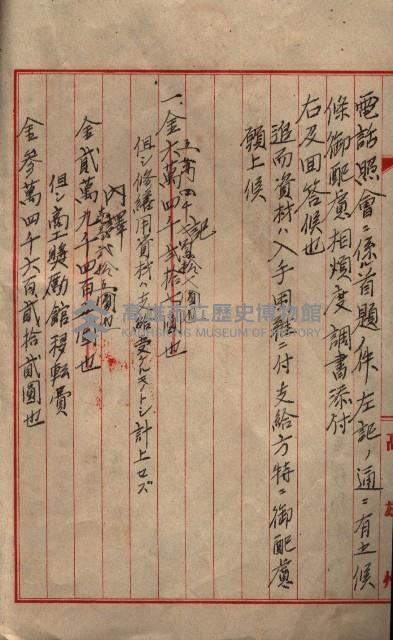 電話照會ニ係ル首題ノ件左記ノ通ニ有之候
條御配慮相煩度調書添付
右及回答候也
追而資材ハ入手困難ニ付支給方特ニ御配慮
願上候
記
一、金六萬四千貳拾圓也
但シ修繕用資材ハ支給
計上セズ
内譯
金貳萬九千四百圓也
但シ商工奬勵館移轉費
金參萬四千六百貳拾貳圓也
高雄州
高雄市立歷史博物館
KAOHSIUNG MUSEUM OF HISTORY